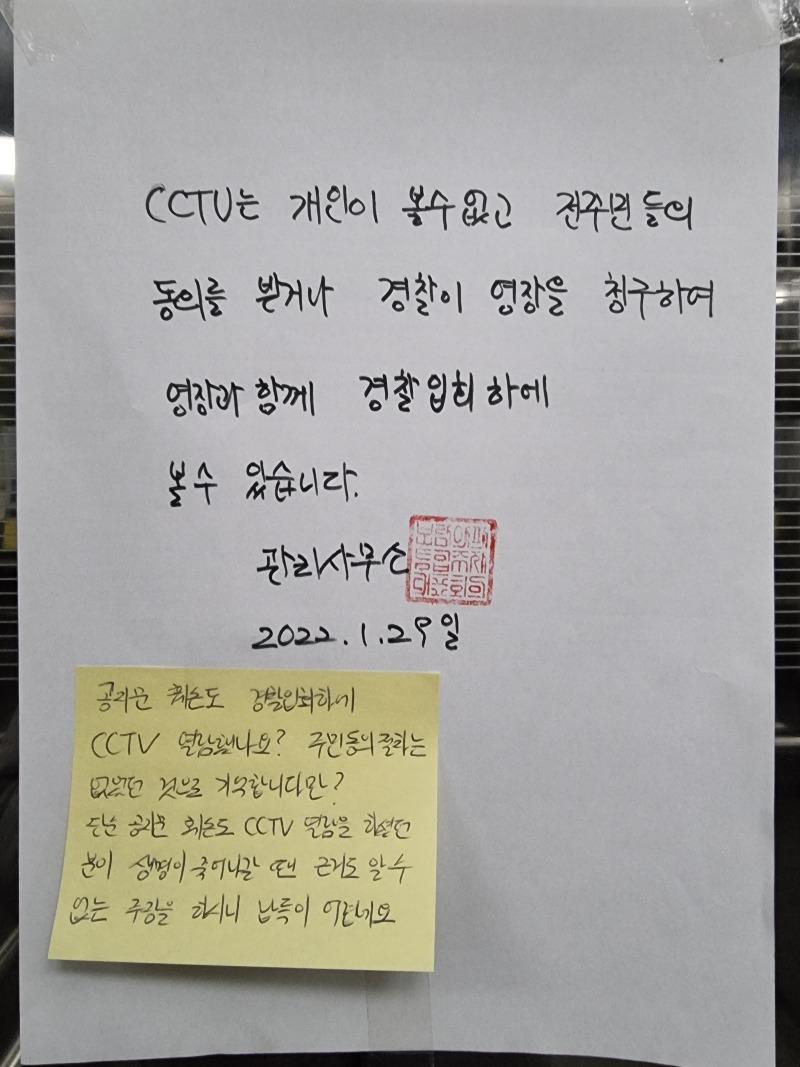 CCTV는 개인이 볼수 없고 전주민들의
동의를 받거나 경찰이 영장을 청구하여
영장과 함께 경찰입회하에
볼수 있습니다.
관리사무소
보람아파
동입주자
대표회의
2022.1.29일
공고문 훼손도 경찰입회하에
CCTV 열람했나요? 주민동의절차는
없었던 것으로 기억합니다만?
공고문 훼손도 CCTV 열람을 하셨던
분이 생명이 죽어나갈 땐 근거도 알수
없는 주장을 하시니 납득이 어렵네요